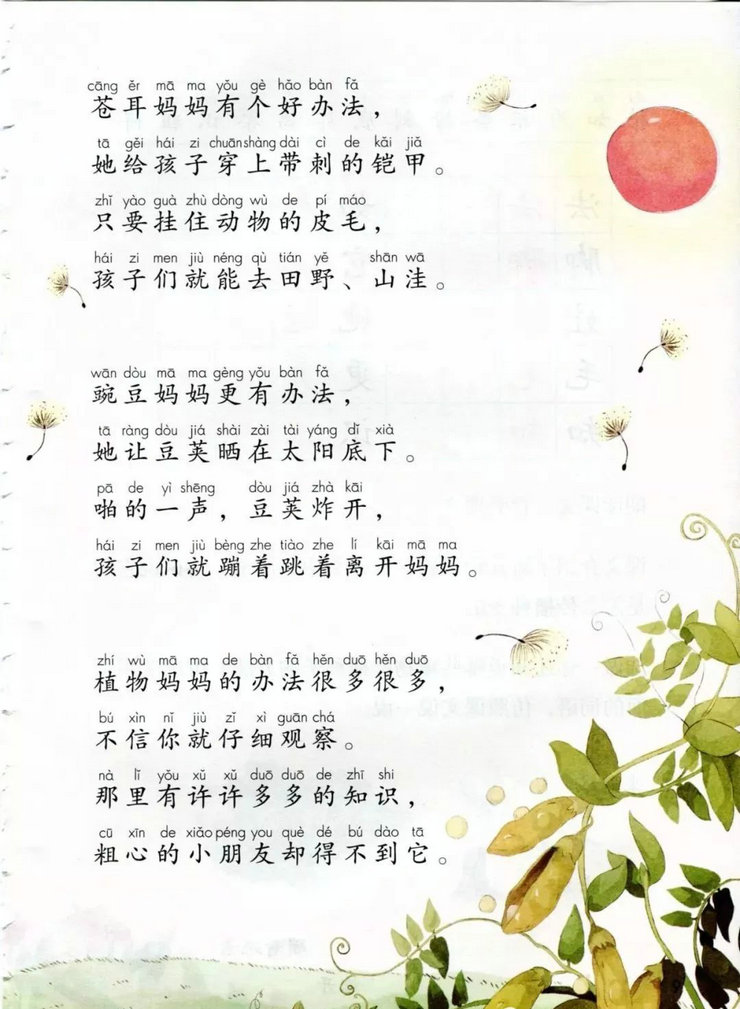 cāng ěr mā ma yǒu gè hǎo bàn fǎ
苍耳妈妈有个好办法，
tā gěi hái zi chuān shàng dài cì de kǎi jiǎ
她给孩子穿上带刺的铠甲。
zhǐ yào guà zhù dòng wù de pí máo
只要挂住动物的皮毛，
hái zi men jiù néng qù tián yě shān wā
孩子们就能去田野、山洼。
wān dòu mā ma gèng yǒu bàn fǎ
豌豆妈妈更有办法，
tā ràng dòu jiá shài zài tài yáng dǐ xià
她让豆荚晒在太阳底下。
pā de yì shēng dòu jiá zhà kāi
啪的一声，豆荚炸开，
hái zi men jiù bèng zhe tiào zhe lí kāi mā ma
孩子们就蹦着跳着离开妈妈。
zhí wù mā ma de bàn fǎ hěn duō hěn duō
植物妈妈的办法很多很多，
bú xìn nǐ jiù zǐ xì guān chá
不信你就仔细观察。
nà lǐ yǒu xǔ xǔ duō duō de zhī shi
那里有许许多多的知识，
cū xīn de xiǎo péng you què dé bú dào tā
粗心的小朋友却得不到它。